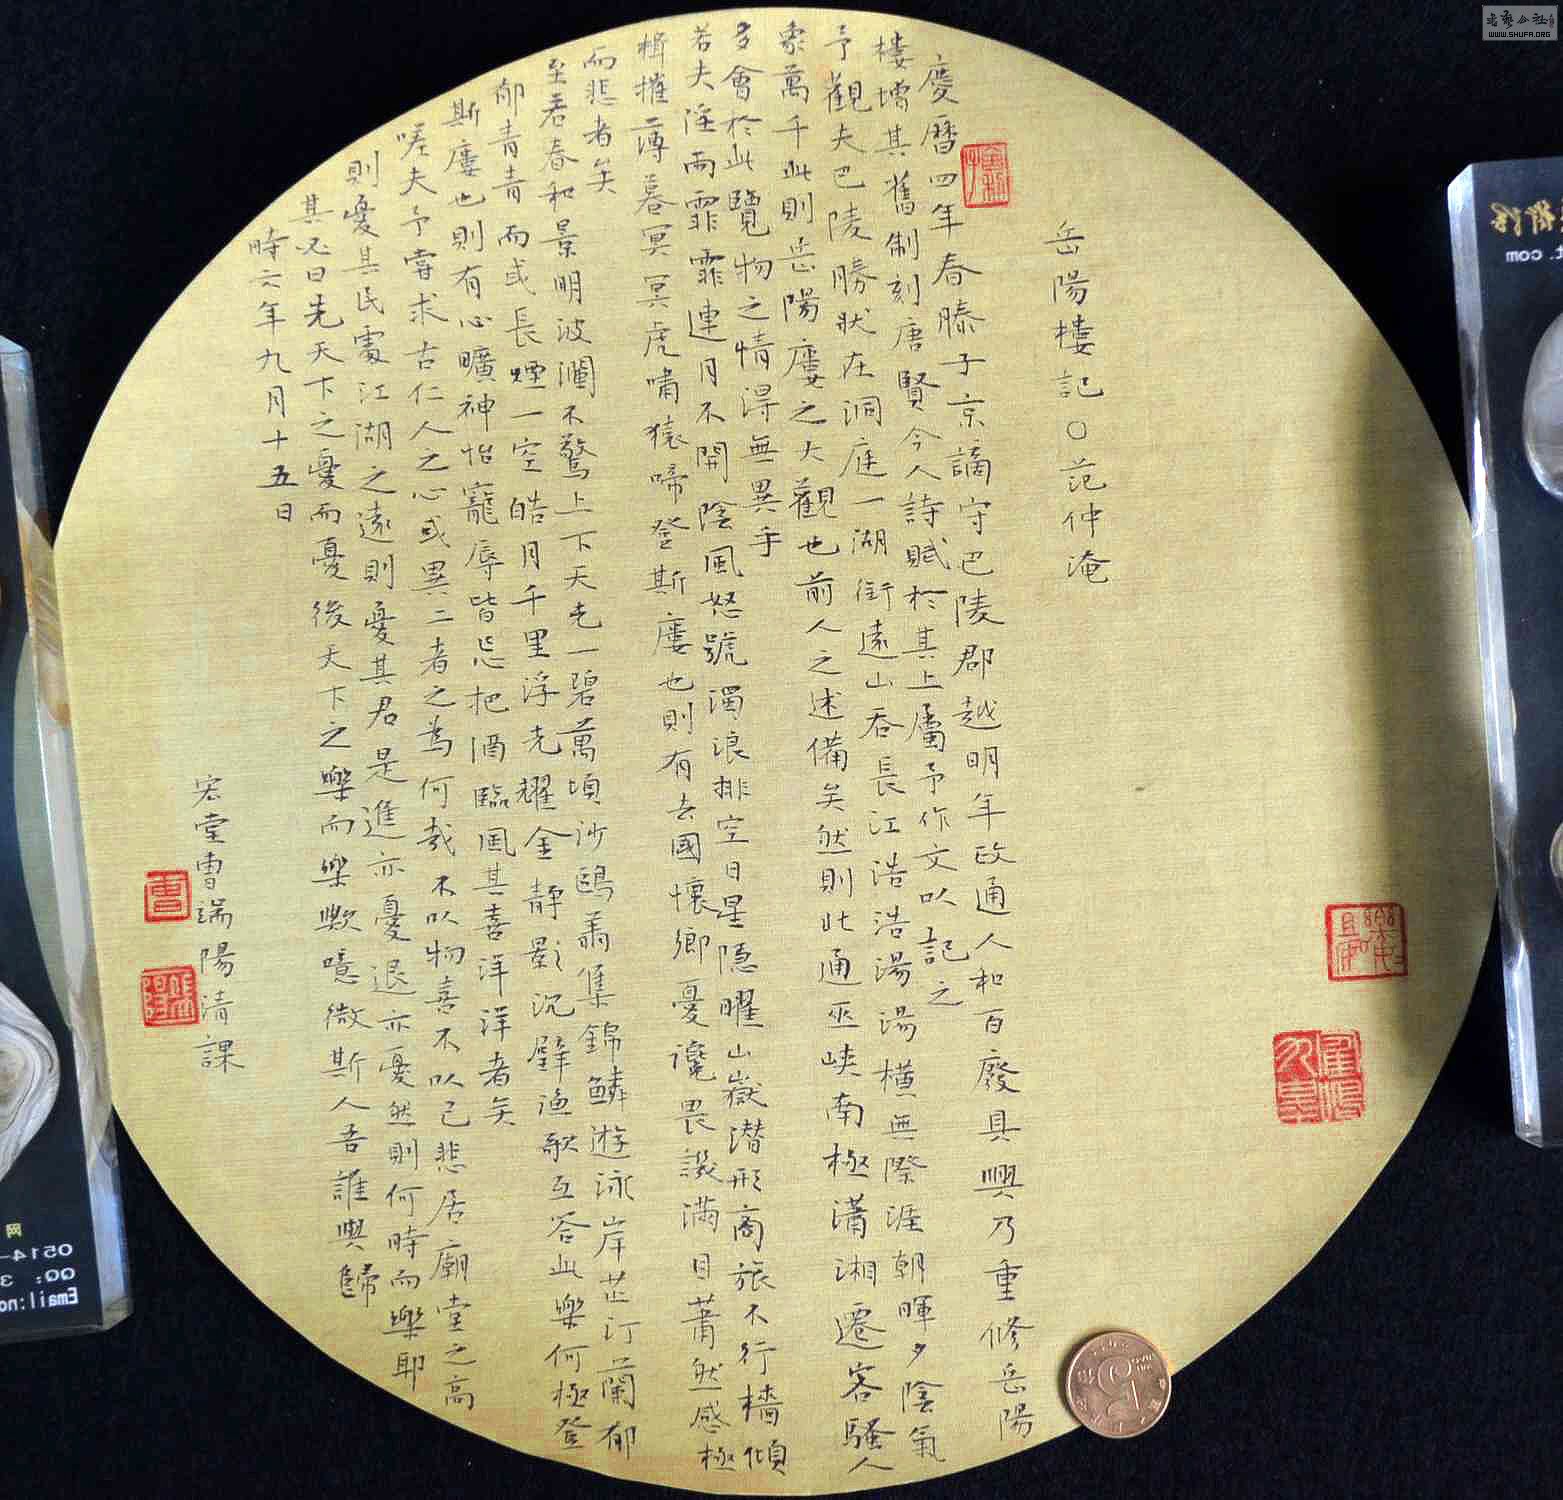 岳陽樓記○范仲淹
慶曆四年春滕子京謫守巴陵郡越明年政通人和百廢具興乃重修岳陽
樓增其舊制刻唐賢今人詩賦於其上屬予作文以記之
予觀夫巴陵勝狀在洞庭一湖銜遠山吞長江浩浩湯湯橫無際涯朝暉夕陰氣
象萬千此則岳陽樓之大觀也前人之述備矣然則此通巫峽南極瀟湘遷客騷人
多會於此覽物之情得無異乎
若夫淫雨霏霏連月不開陰風怒號濁浪排空日星隱曜山嶽潛形商旅不行檣傾
楫摧薄暮冥冥虎嘯猿啼登斯樓也則有去國懷鄉憂讒畏譏滿目蕭然感極
而悲者矣
至若春和景明波瀾不驚上下天光一碧萬頃沙鷗翔集錦鱗游泳岸芷汀蘭郁
郁青青而或長煙一空皓月千里浮光耀金靜影沉璧漁歌互答此樂何極登
斯樓也則有心曠神怡寵辱皆忘把酒臨風其喜洋洋者矣
嗟夫予嘗求古仁人之心或異二者之為何哉不以物喜不以己悲居廟堂之高
則憂其民處江湖之遠則憂其君是進亦憂退亦憂然則何時而樂耶
其必曰先天下之憂而憂後天下之樂而樂歟噫微斯人吾誰與歸
時六年九月十五日
宏堂曹端陽清課
曹
WWW.SHUFA.ORG